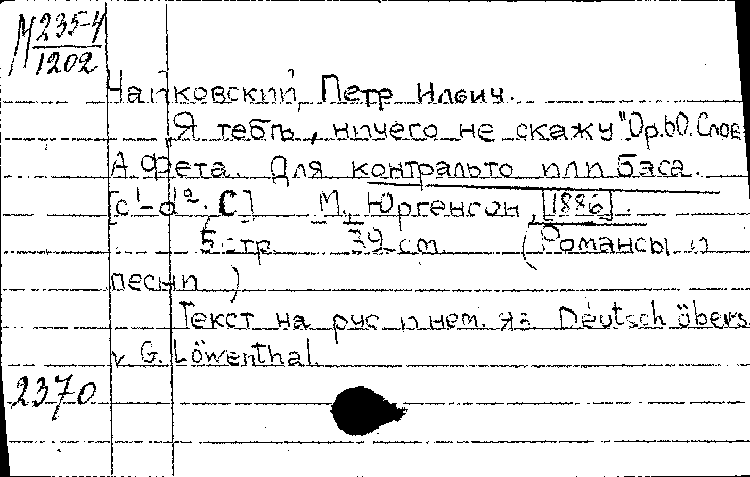 М 2354
1202
Чайковский, Петр Ильич.
Я тебѣ, ничего не скажу "Op. 60. Слов
А. Фета. Для контральто или баса.
[c¹-d². C] М., Юргенсон, [1886].
5 стр. 39 см. (Романсы и
песни)
Текст на рус и нем. яз Deutsch übers
v G. Löwenthal.
2370